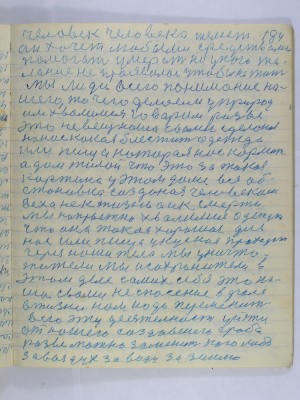 человек человека тянет 184
он хочет любыми средствами
помогат умерат ни у кого же
лание не проявилос чтобы жит
мы люди всего понимание на
шего то чего делаем у природ
им хвалимся говорим разве
это не вкусная
наша блестит одежда
или пища которая нас кормит
а дом жилой что это за такая
картина у этом доме все об
становка созданая человеком
века не к жизни а к смерти
мы напрасно хвалимся одежда
что она такая хорошая для
нас или пища укусная проходит
через наши тела мы уничто
жители мы и сохранители в
этом деле самих себя это на
ша не спасение в деле
а жизни нам надо переменит
всего эту деятелност уйти
от нашего создавшего гроба
разве можно заменит кого либо
за воздух за воду за землю